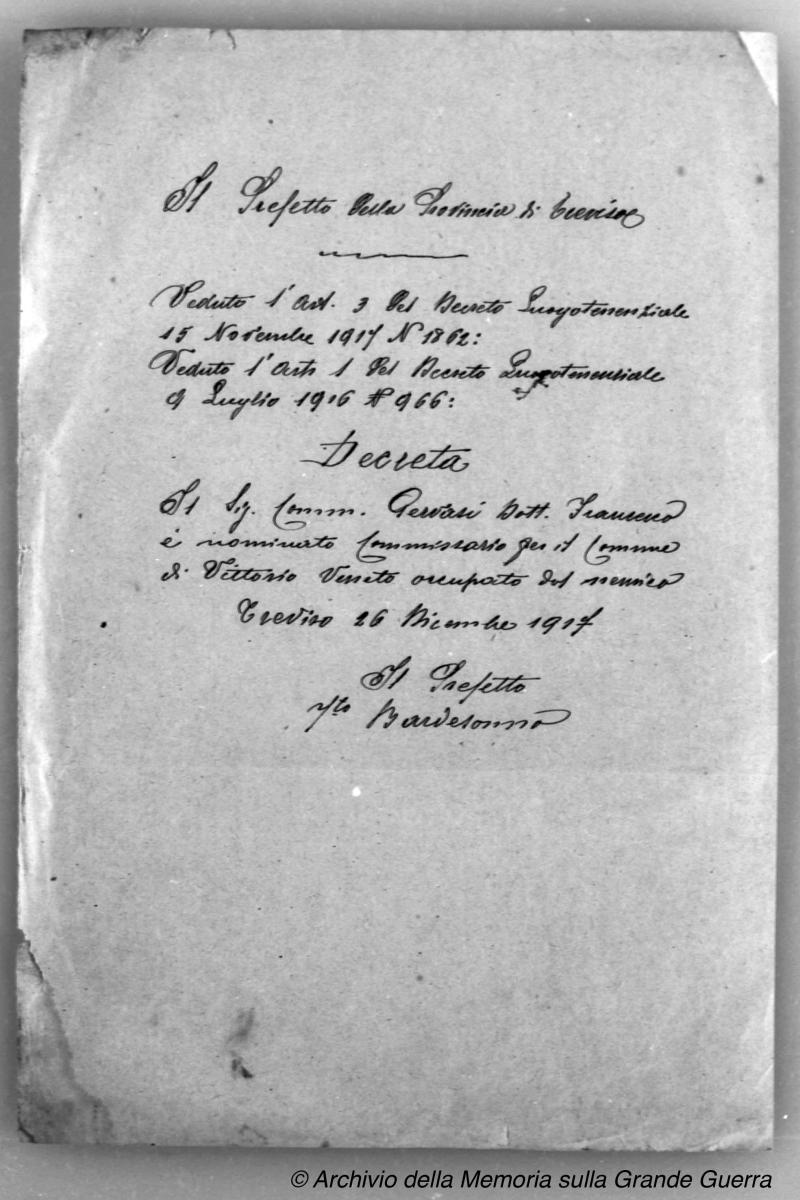 Il Prefetto della Provincia di Treviso
Veduto l'Art. 3 del Decreto Luogotenenziale
15 Novembre 1917 N 1862:
Veduto l'Art. 1 del Decreto Luogotenenziale
9 Luglio 1916 N 966:
Decreta
Il Sig. Comm. Gervasi Dott. Francesco
è nominato Commissario per il Comune
di Vittorio Veneto occupato dal nemico
Treviso 26 Dicembre 1917
Il Prefetto
fto Bardesonno
© Archivio della Memoria sulla Grande Guerra